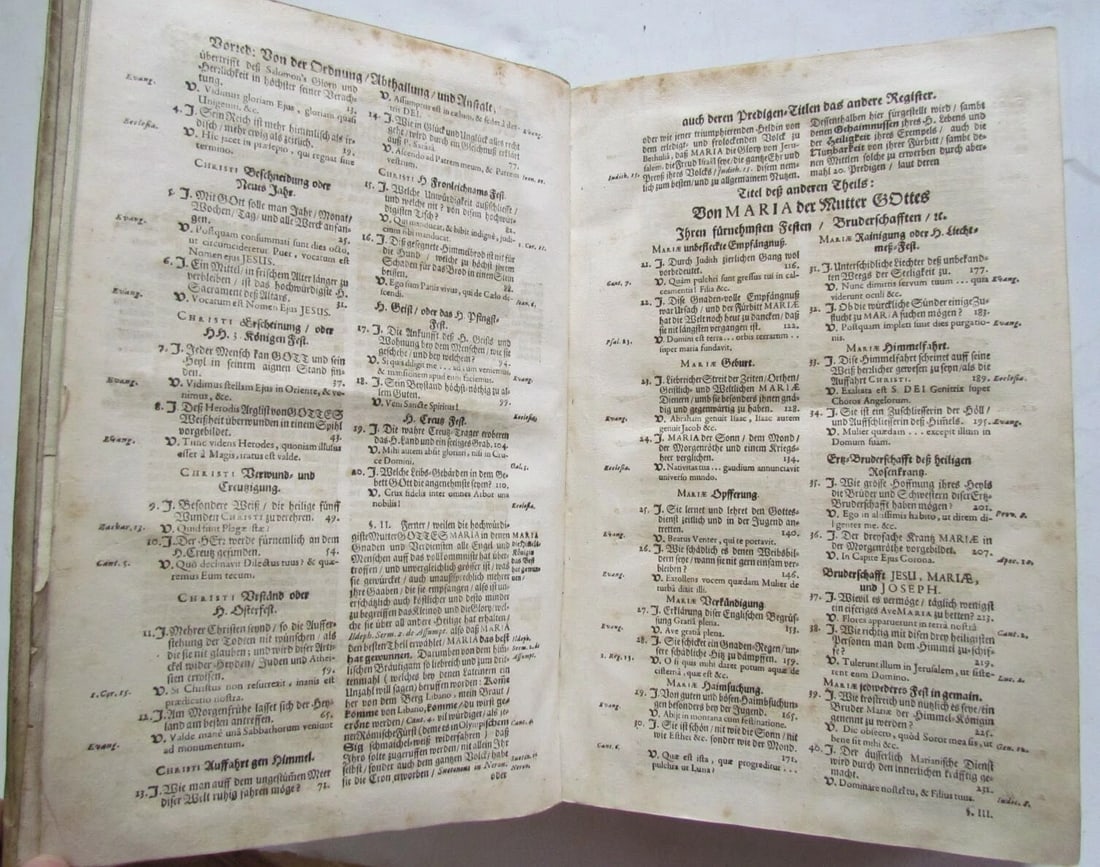 Vorred: Von der Ordnung / Abtheilung / und Anstalt,
übertrifft deß Salomon's Glory und
Herrlichkeit in höchster seiner Verach-
tung. 13.
Evang. V. Vidimus gloriam Ejus, gloriam quasi
Unigeniti, &c.
4. J. Sein Reich ist mehr himmlisch als ir-
disch / mehr ewig als zeitlich. 19.
Ecclesia. V. Hic jacet in præsepio, qui regnat sine
termino.
CHRISTI Beschneidung oder
Neues Jahr.
5. J. Mit Gott solle man Jahr / Monat /
Wochen / Tag / und alle Werck anfan-
gen. 25.
Evang. V. Postquam consummati sunt dies octo,
ut circumcideretur Puer, vocatum est
Nomen ejus JESUS.
6. J. Ein Mittel / in frischem Alter länger zu
verbleiben / ist das hochwürdigste H.
Sacrament deß Altars. 31.
Evang. V. Vocatum est Nomen Ejus JESUS.
CHRISTI Erscheinung / oder
HH. 3. Königen Fest.
7. J. Jeder Mensch kan GOTT und sein
Heyl in seinem aignen Stand fin-
den. 37.
Evang. V. Vidimus stellam Ejus in Oriente, & ve-
nimus, &c.
8. J. Deß Herodis Arglist von GOTTES
Weißheit überwunden in einem Spihl
vorgebildet. 43.
Evang. V. Tunc videns Herodes, quoniam illusus
esset à Magis, iratus est valde.
CHRISTI Verwund- und
Creutzigung.
9. J. Besondere Weiß / die heilige fünff
Wunden CHRISTI zu verehren. 49.
Zachar. 13. V. Quid sunt Plagæ istæ?
10. J. Der HErr werde fürnemlich an dem
H. Creutz gefunden. 54.
Cant. 5. V. Quò declinavit Dilectus tuus? & quæ-
remus Eum tecum.
CHRISTI Urständ oder
H. Osterfest.
11. J. Mehrer Christen seynd / so die Auffer-
stehung der Todten nit wünschen / als
die sie nit glauben; und wird diser Arti-
ckel wider Heyden / Juden und Athei-
sten erwisen. 59.
1. Cor. 15. V. Si Christus non resurrexit, inanis est
prædicatio nostra.
12. J. Am Morgenfrühe lasset sich der Hey-
land am besten antreffen. 65.
Evang. V. Valde manè unâ Sabbathorum veniunt
ad monumentum.
CHRISTI Auffahrt gen Himmel.
13. J. Wie man auß dem ungestümen Meer
diser Welt ruhig fahren möge? 71.
V. Assumptus est in cælum, & sedet à dex-
tris DEI. Evang.
14. J. Wie in Glück und Unglück alles recht
gehe / wird durch ein Gleichnuß erklärt
V. Ascendo ad Patrem meum, & Patrem
vestrum. Joan. 20.
CHRISTI H Fronleichnams Fest.
15. J. Welche Unwürdigkeit außschliesse /
und welche nit? von disem hochwür-
digisten Tisch? 82.
V. Qui manducat, & bibit indignè, judi-
cium sibi manducat. 1. Cor. 11.
16. J. Diß gesegnete Himmelbrod ist nit für
die Hund / welche zu höchst ihrem
Schaden für das Brod in einen Stein
beissen. 88.
V. Ego sum Panis vivus, qui de Cælo de-
scendi. Joan. 6.
H. Geist / oder das H. Pfingst-
Fest.
17. J. Die Ankunfft deß H. Geists und
Wohnung bey dem Menschen / wie sie
geschehe / und bey welchen? 94.
V. Si quis diligit me ... ad eum veniemus,
& mansionem apud eum faciemus. Evang.
18. J. Sein Beystand höchst-nöthig zu al-
lem Guten. 99.
V. Veni Sancte Spiritus! Ecclesia.
H. Creutz Fest.
19. J. Die wahre Creutz-Trager eroberen
das H. Land und ein seeliges Grab. 104.
V. Mihi autem absit gloriari, nisi in Cru-
ce Domini. Gal. 6.
20. J. Welche Leibs-Gebärden in dem Ge-
bett GOtt die angenehmste seyen? 110.
V. Crux fidelis inter omnes Arbor una
nobilis! Ecclesia.
§. II. Ferner / weilen die hochwürdi-
giste Mutter GOTTES MARIA in denen
Gnaden und Verdiensten alle Engel und
Menschen auff das vollkommniste hat über-
troffen / und unvergleichlich grösser ist / was
sie gewürckt / auch unaußsprechlich mehrer
ihre Gaaben / die sie empfangen / also ist un-
erschätzlich auch köstlicher und desto minder
zu begreiffen das Kleinod und die Glory / wel-
che sie über all andere Heilige hat erhalten /
Ildeph. Serm. 2. de Assumpt. also daß MARIA
den besten Theil erwählet / MARIA das best
hat gewunnen. Darumben von dem him-
lischen Bräutigam so lieblich und zum drit-
tenmahl (welches bey denen Lateinern ein
Unzahl will sagen) beruffen worden: Komme
her von dem Berg Libano, mein Braut /
komme von Libano, komme / du wirst ge-
krönt werden / Cant. 4. vil würdiger / als je-
ner Römische Fürst (deme es im Olympischen
Sig schmaichel-weiß widerfahren) daß
Ihro solte zugeruffen werden / mit allein Ihr
selbst / sondern auch dem gantzen Volck / habe
sie die Cron erworben / Suetonius in Neron.
oder
auch deren Predigen-Titlen das andere Register.
oder wie jener triumphierenden Heldin von
dem erledigt- und frolockenden Volck zu
Bethuliâ, daß MARIA die Glory von Jeru-
salem, die Freud Israël seye, die gantze Ehr und
Preyß ihres Volcks / Judith. 15. disem nem-
lich zum besten / und zu allgemainem Nutzen.
Judith. 15.
Dessenthalben hier fürgestellt wird / sambt
denen Gehaimnussen ihres H. Lebens und
der Heiligkeit ihres Exempels / auch die
Nutzbarkeit von ihrer Fürbitt / sambt de-
nen Mittlen solche zu erwerben durch aber-
mahl 20. Predigen / laut deren
Titel deß anderen Theils:
Von MARIA der Mutter GOttes
Ihren fürnehmsten Festen / Bruderschafften / &c.
MARIÆ unbefleckte Empfängnuß.
21. J. Durch Judith zierlichen Gang vol
vorbedeutet. 116.
Cant. 7. V. Quàm pulchri sunt gressus tui in cal-
ceamentis! Filia &c.
22. J. Dise Gnaden-volle Empfängnuß
war Ursach / und der Fürbitt MARIÆ
hat die Welt noch heut zu dancken / daß
sie nit längsten vergangen ist. 122.
Psal. 23. V. Domini est terra ... orbis terrarum ..
super maria fundavit.
MARIÆ Geburt.
23. J. Liebreicher Streit der Zeiten / Orthen /
Geistlich- und Weltlichen MARIÆ
Dienern / umb sie besonders ihnen gnä-
dig und gegenwärtig zu haben. 128.
Evang. V. Abraham genuit Isaac, Isaac autem
genuit Jacob &c.
24. J. MARIA der Sonn / dem Mond /
der Morgenröthe und einem Kriegs-
heer verglichen. 134.
Ecclesia. V. Nativitas tua ... gaudium annunciavit
universo mundo.
MARIÆ Opfferung.
25. J. Sie lernet und lehret den Gottes-
dienst zeitlich und in der Jugend an-
tretten. 140.
Evang. V. Beatus Venter, qui te portavit.
26. J. Wie schädlich es denen Weibsbil-
dern seye / wann sie gern einsam ver-
bleiben? 146.
Evang. V. Extollens vocem quædam Mulier de
turba dixit illi.
MARIÆ Verkündigung.
27. J. Erklärung diser Englischen Begrüs-
sung Gratiâ plena. 153.
Evang. V. Ave gratiâ plena.
28. J. Sie schicket ein Gnaden-Regen / un-
sere schädliche Hitz zu dämpffen. 159.
2. Reg. 23. V. O si quis mihi daret potum aquæ de
cisterna, quæ est &c.
MARIÆ Haimsuchung.
29. J. Von guten und bösen Haimbsuchun-
gen besonders bey der Jugend. 165.
Evang. V. Abiit in montana cum festinatione.
30. J. Sie ist schön / nit wie die Sonn / nit
wie Esther &c. sonder wie der Mond.
171.
Cant. 6. V. Quæ est ista, quæ progreditur ...
pulchra ut Luna?
MARIÆ Rainigung oder H. Liecht-
meß-Fest.
31. J. Unterschidliche Liechter deß unbekand-
ten Weegs der Seeligkeit zu. 177.
V. Nunc dimittis servum tuum ... quia
viderunt oculi &c. Evang.
32. J. Ob die würckliche Sünder einige Zu-
flucht zu MARIA suchen mögen? 183.
V. Postquam impleti sunt dies purgatio-
nis. Evang.
MARIÆ Himmelfahrt.
33. J. Dise Himmelfahrt scheinet auff seine
Weiß herrlicher gewesen zu seyn / als die
Auffahrt CHRISTI. 189.
V. Exaltata est S. DEI Genitrix super
Choros Angelorum. Ecclesia.
34. J. Sie ist ein Zuschliesserin der Höll /
und Auffschliesserin deß Himels. 195.
V. Mulier quædam ... excepit illum in
Domum suam. Evang.
Ertz-Bruderschafft deß heiligen
Rosenkrantz.
35. J. Wie grosse Hoffnung ihres Heyls
die Brüder und Schwestern diser Ertz-
Bruderschafft haben mögen? 201.
V. Ego in altissimis habito, ut ditem di-
ligentes me. &c. Prov. 8.
36. J. Der dreyfache Krantz MARIÆ in
der Morgenröthe vorgebildet. 207.
V. In Capite Ejus Corona. Apoc. 12.
Bruderschafft JESU, MARIÆ,
und JOSEPH.
37. J. Wievil es vermöge / täglich wenigst
ein eiferiges Ave MARIA zu betten? 213.
V. Flores apparuerunt in terra nostra. Cant. 2.
38. J. Wie richtig mit disen drey heiligisten
Personen man dem Himmel zu-schif-
fe? 219.
V. Tulerunt illum in Jerusalem, ut siste-
rent eum Domino. Luc. 2.
MARIÆ jedwederes Fest in gemain.
39. J. Wie trostreich und nützlich es seye / ein
Bruder MARIÆ der Himmel-Königin
genennt zu werden? 225.
V. Dic obsecro, quòd Soror mea sis, ut
bene sit mihi &c. Gen. 12.
40. J. Der äusserlich Marianische Dienst
wird durch den innerlichen kräfftig ge-
macht. 231.
V. Dominare nostri tu, & Filius tuus. Judic. 8.
§. III.